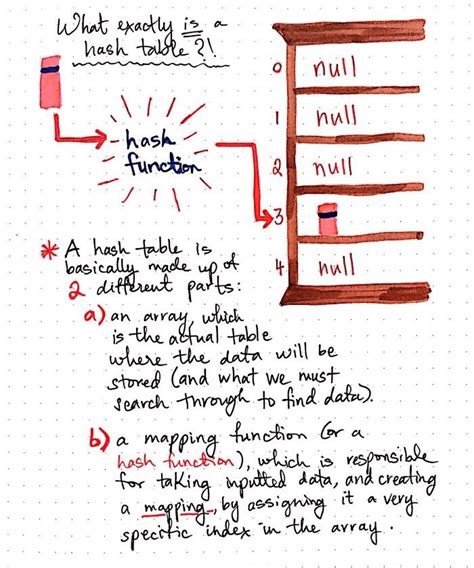 What exactly is a
hash table?!
hash
function
0 null
1 null
2 null
3
4 null
* A hash table is
basically made up of
2 different parts:
a) an array, which
is the actual table
where the data will be
stored (and what we must
search through to find data).
b) a mapping function (or a
hash function), which is responsible
for taking inputted data, and creating
a mapping, by assigning it a very
specific index in the array.